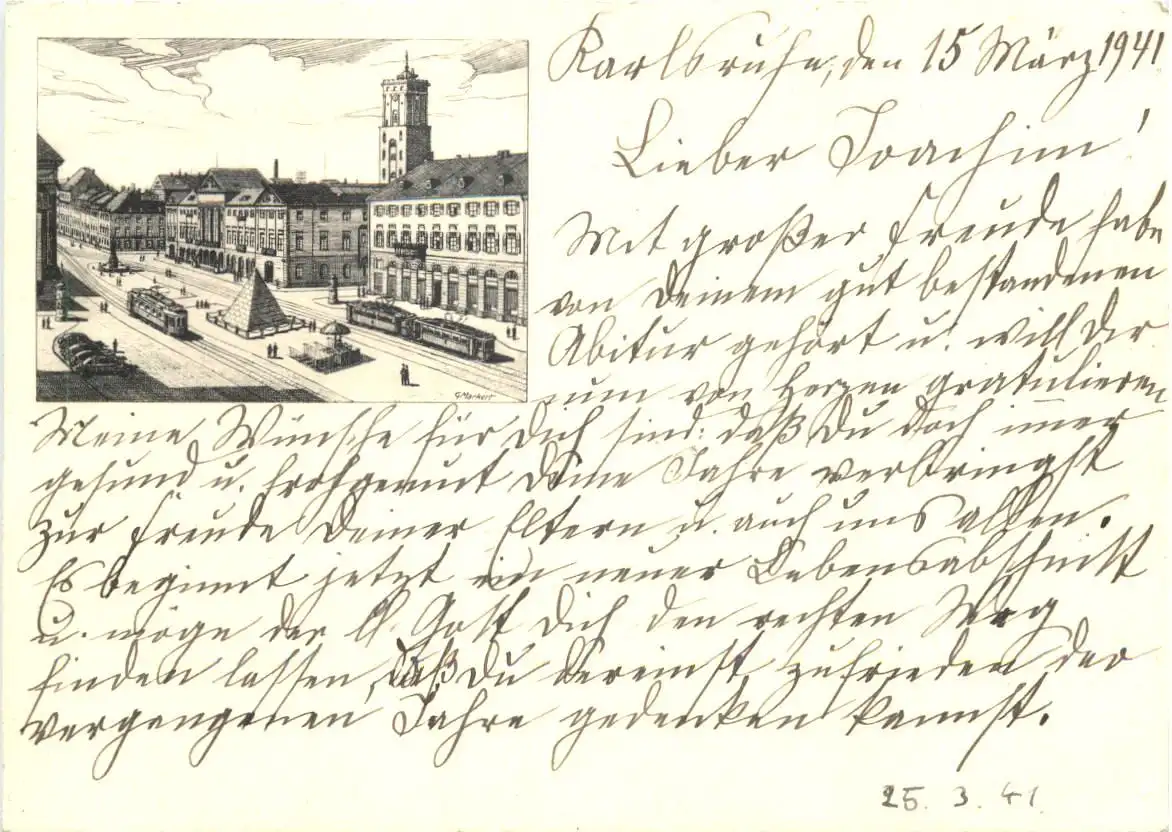 Karlsruhe, den 15 März 1941
Lieber Joachim!
Mit großer Freude habe
von Deinem gut bestandenen
Abitur gehört u. will Dir
zum von Herzen gratulieren
Meine Wünsche für Dich sind: daß Du doch imer
gesund u. frohgemut Deine Jahre verbringst
zur Freude Deiner Eltern u. auch uns allen.
Es beginnt jetzt ein neuer Lebensabschnitt
u. möge der lb. Gott Dich den rechten Weg
finden lassen, daß Du dereinst zufrieden der
vergangenen Jahre gedenken kannst.
G Markert
25. 3. 41